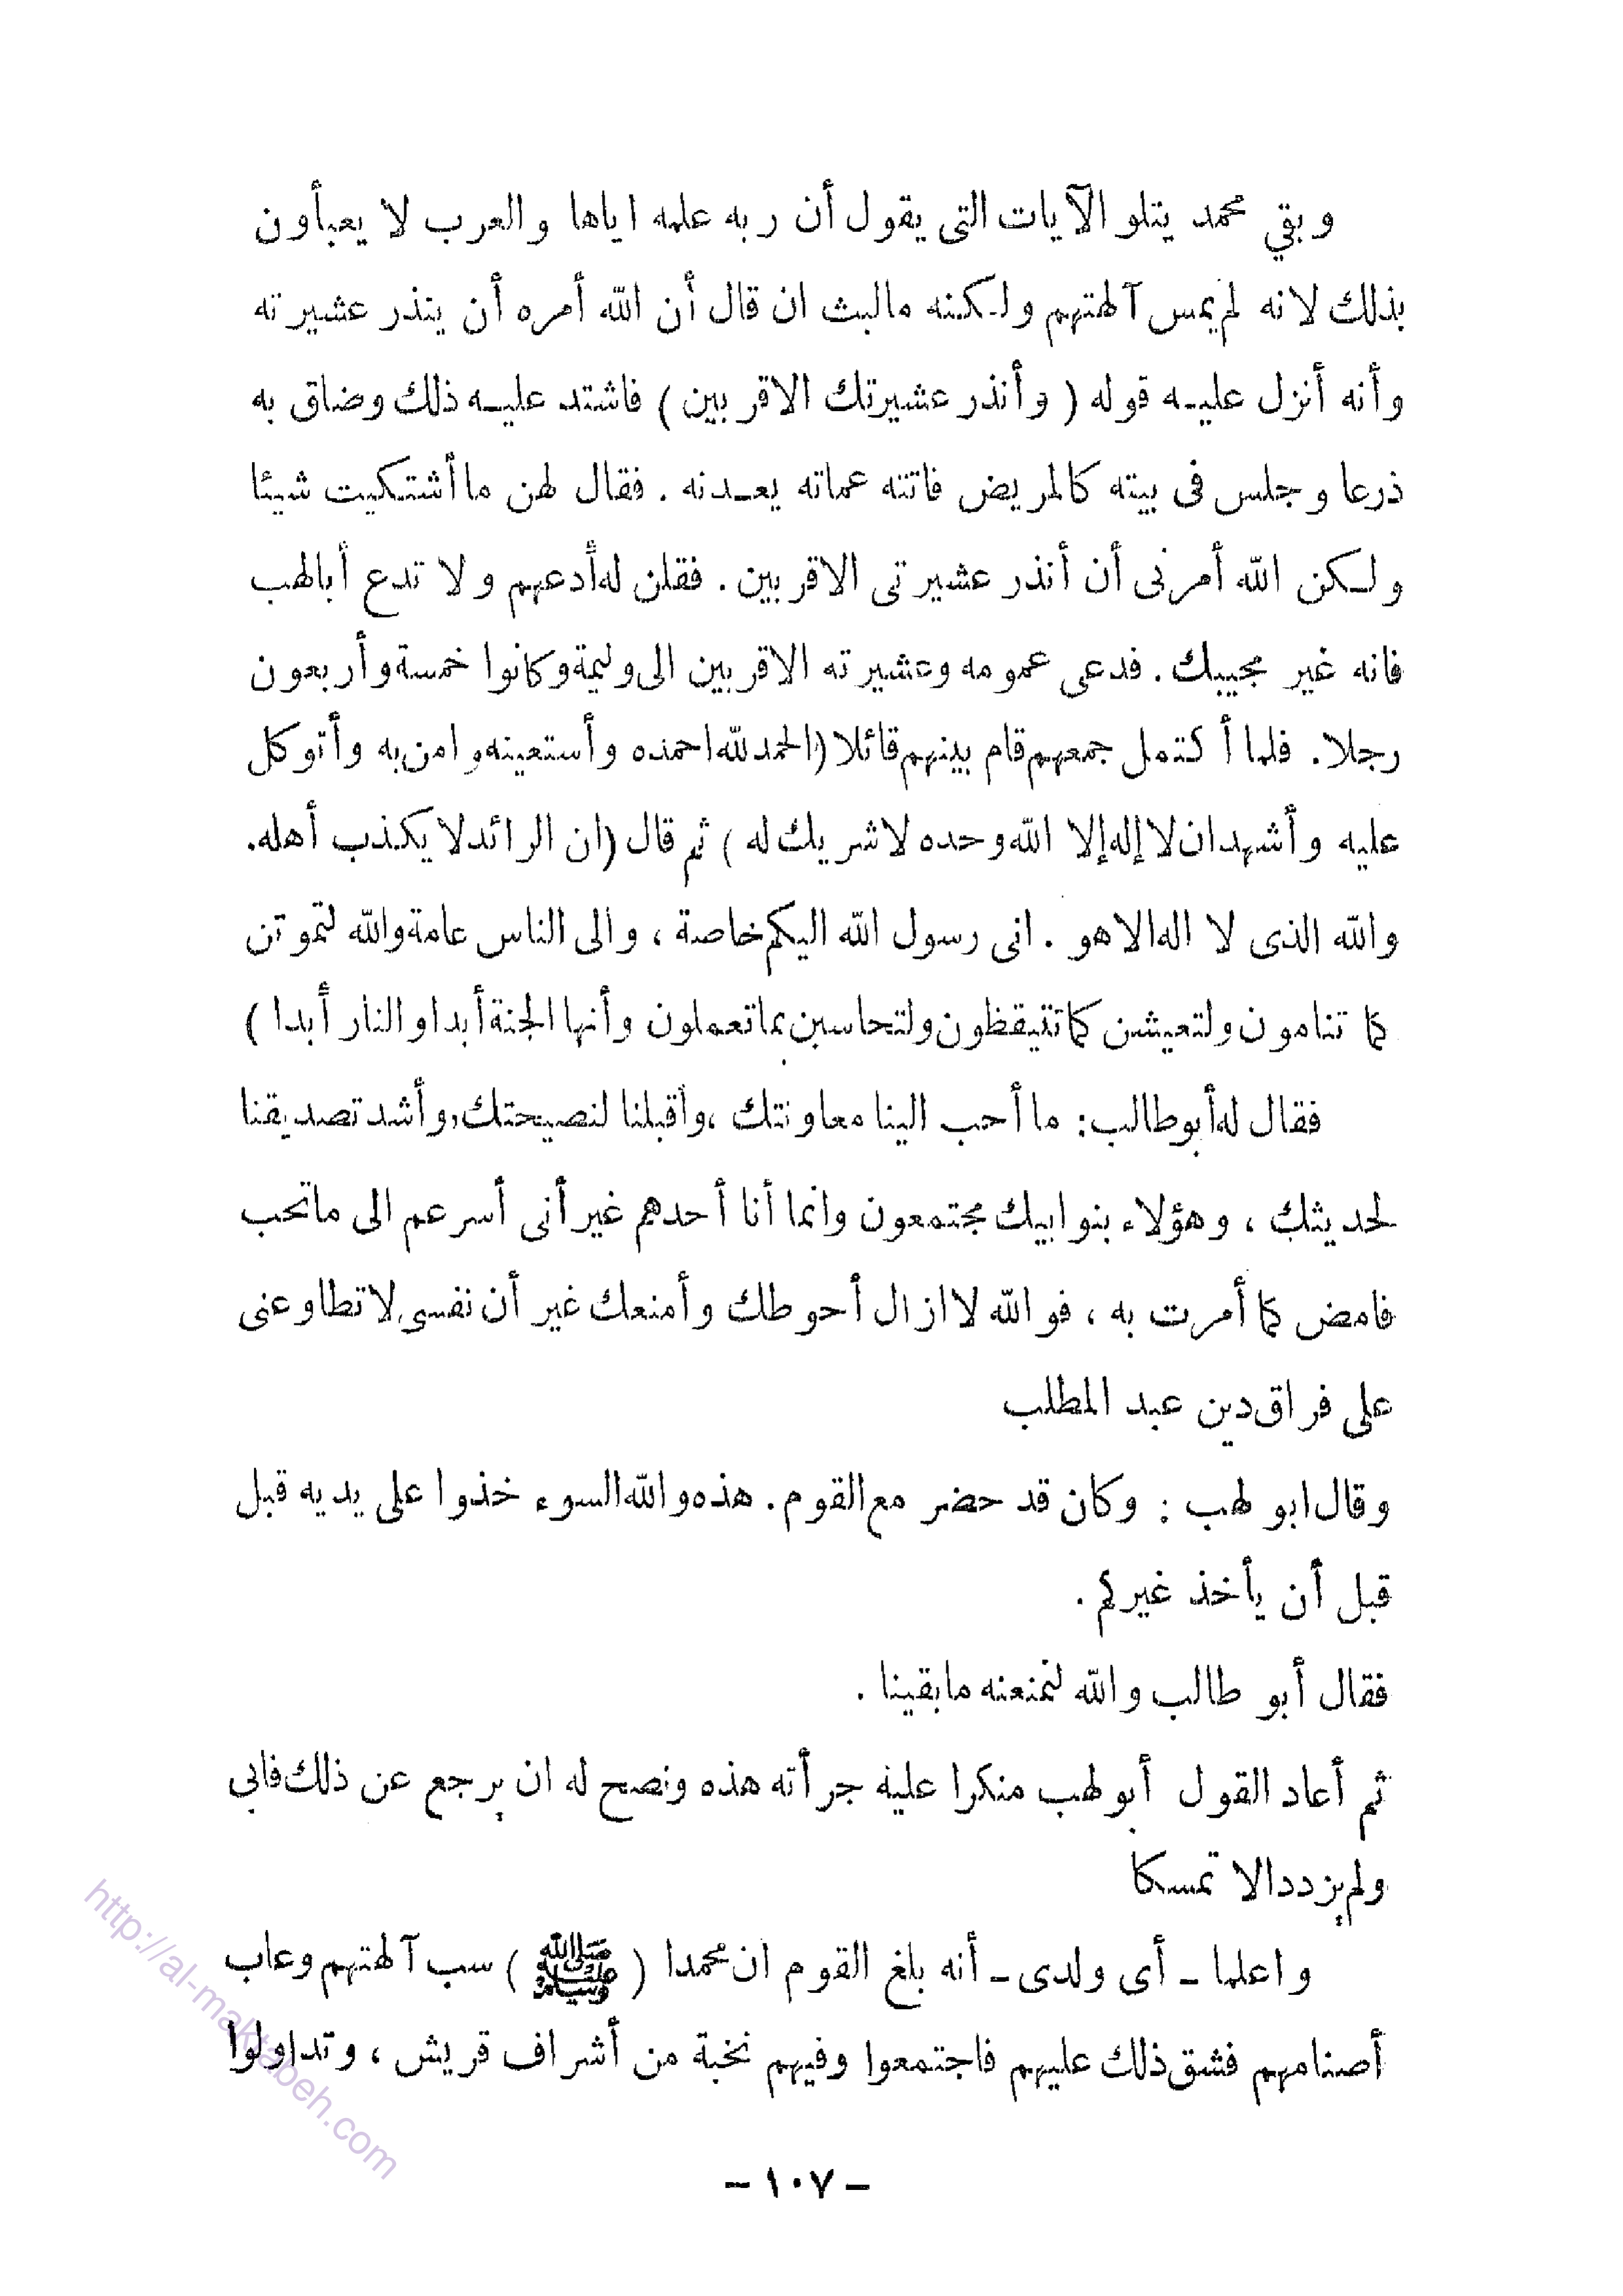 وبقي محمد يتلو الآيات التى يقول أن ربه علمه اياها والعرب لا يعبأون
بذلك لانه لم يمس آلهتهم ولكنه مالبث ان قال أن الله أمره أن ينذر عشيرته
وأنه أنزل عليه قوله ( وأنذر عشيرتك الاقربين ) فاشتد عليه ذلك وضاق به
ذرعا وجلس فى بيته كالمريض فاتته عماته يعدنه . فقال لهن ما أشتكيت شيئا
ولكن الله أمرنى أن أنذر عشيرتى الاقربين . فقلن له أدعهم ولا تدع أبالهب
فانه غير مجيبك . فدعى عمومه وعشيرته الاقربين الى وليمة وكانوا خمسة وأربعون
رجلا . فلما أكتمل جمعهم قام بينهم قائلا (الحمد لله احمده وأستعينه وامن به وأتوكل
عليه وأشهد ان لا إله إلا الله وحده لا شريك له ) ثم قال (ان الرائد لا يكذب أهله.
والله الذى لا اله الا هو . انى رسول الله اليكم خاصة ، والى الناس عامة والله لتموتن
كما تنامون ولتعيشن كما تتيقظون ولتحاسبن بما تعملون وأنها الجنة أبدا والنار أبدا )
فقال له أبوطالب: ما أحب الينا معاونتك ،وأقبلنا لنصيحتك،وأشد تصديقنا
لحديثك ، وهؤلاء بنو ابيك مجتمعون وانما أنا أحدهم غير أنى أسرعم الى ماتحب
فامض كما أمرت به ، فوالله لا ازال أحوطك وأمنعك غير أن نفسى لا تطاوعنى
على فراق دين عبد المطلب
وقال ابو لهب : وكان قد حضر مع القوم . هذه والله السوء خذوا على يديه قبل
قبل أن يأخذ غيركم .
فقال أبو طالب والله لنمنعنه مابقينا .
ثم أعاد القول أبو لهب منكرا علية جرأته هذه ونصح له ان يرجع عن ذلك فابى
ولم يزدد الا تمسكا
واعلما ـ أى ولدى ـ أنه بلغ القوم ان محمدا ( ﷺ ) سب آلهتهم وعاب
أصنامهم فشق ذلك عليهم فاجتمعوا وفيهم نخبة من أشراف قريش ، وتداولوا
– ١٠٧ –
http://al-maktabeh.com